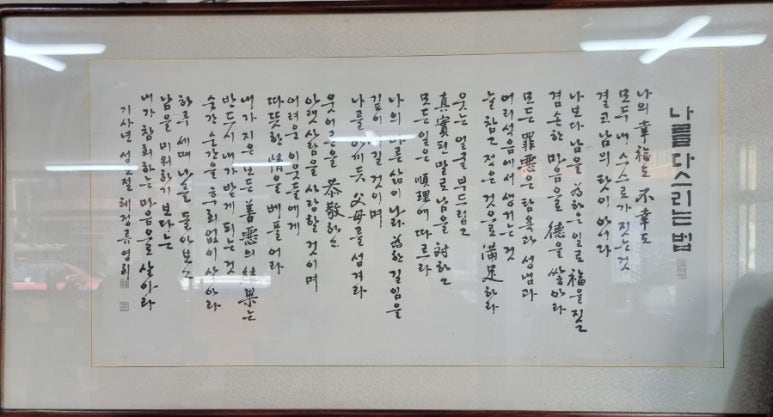 나를 다스리는 법
나의 幸福도 不幸도
모두 내 스스로가 짓는 것
결코 남의 탓이 아니라
나보다 남을 爲하는 일로 福을 짓고
겸손한 마음으로 德을 쌓아라
모든 罪惡은 탐욕과 성냄과
어리석음에서 생기는 것
늘 참고 적은 것으로 滿足하라
웃는 얼굴 부드럽고
眞實된 말로 남을 對하고
모든 일은 順理에 따르라
나의 바른 삶이 나라 爲한 길임을
깊이 새길 것이며
나를 아끼듯 父母를 섬겨라
웃어른을 恭敬하고
아랫사람을 사랑할 것이며
어려운 이웃들에게
따뜻한 情을 베풀어라
내가 지은 모든 善惡의 結果는
반드시 내가 받게 되는 것
순간 순간을 후회없이 살아라
하루 세때 나를 돌아보고
남을 미워하기 보다는
내가 참회하는 마음으로 살아라
기사년